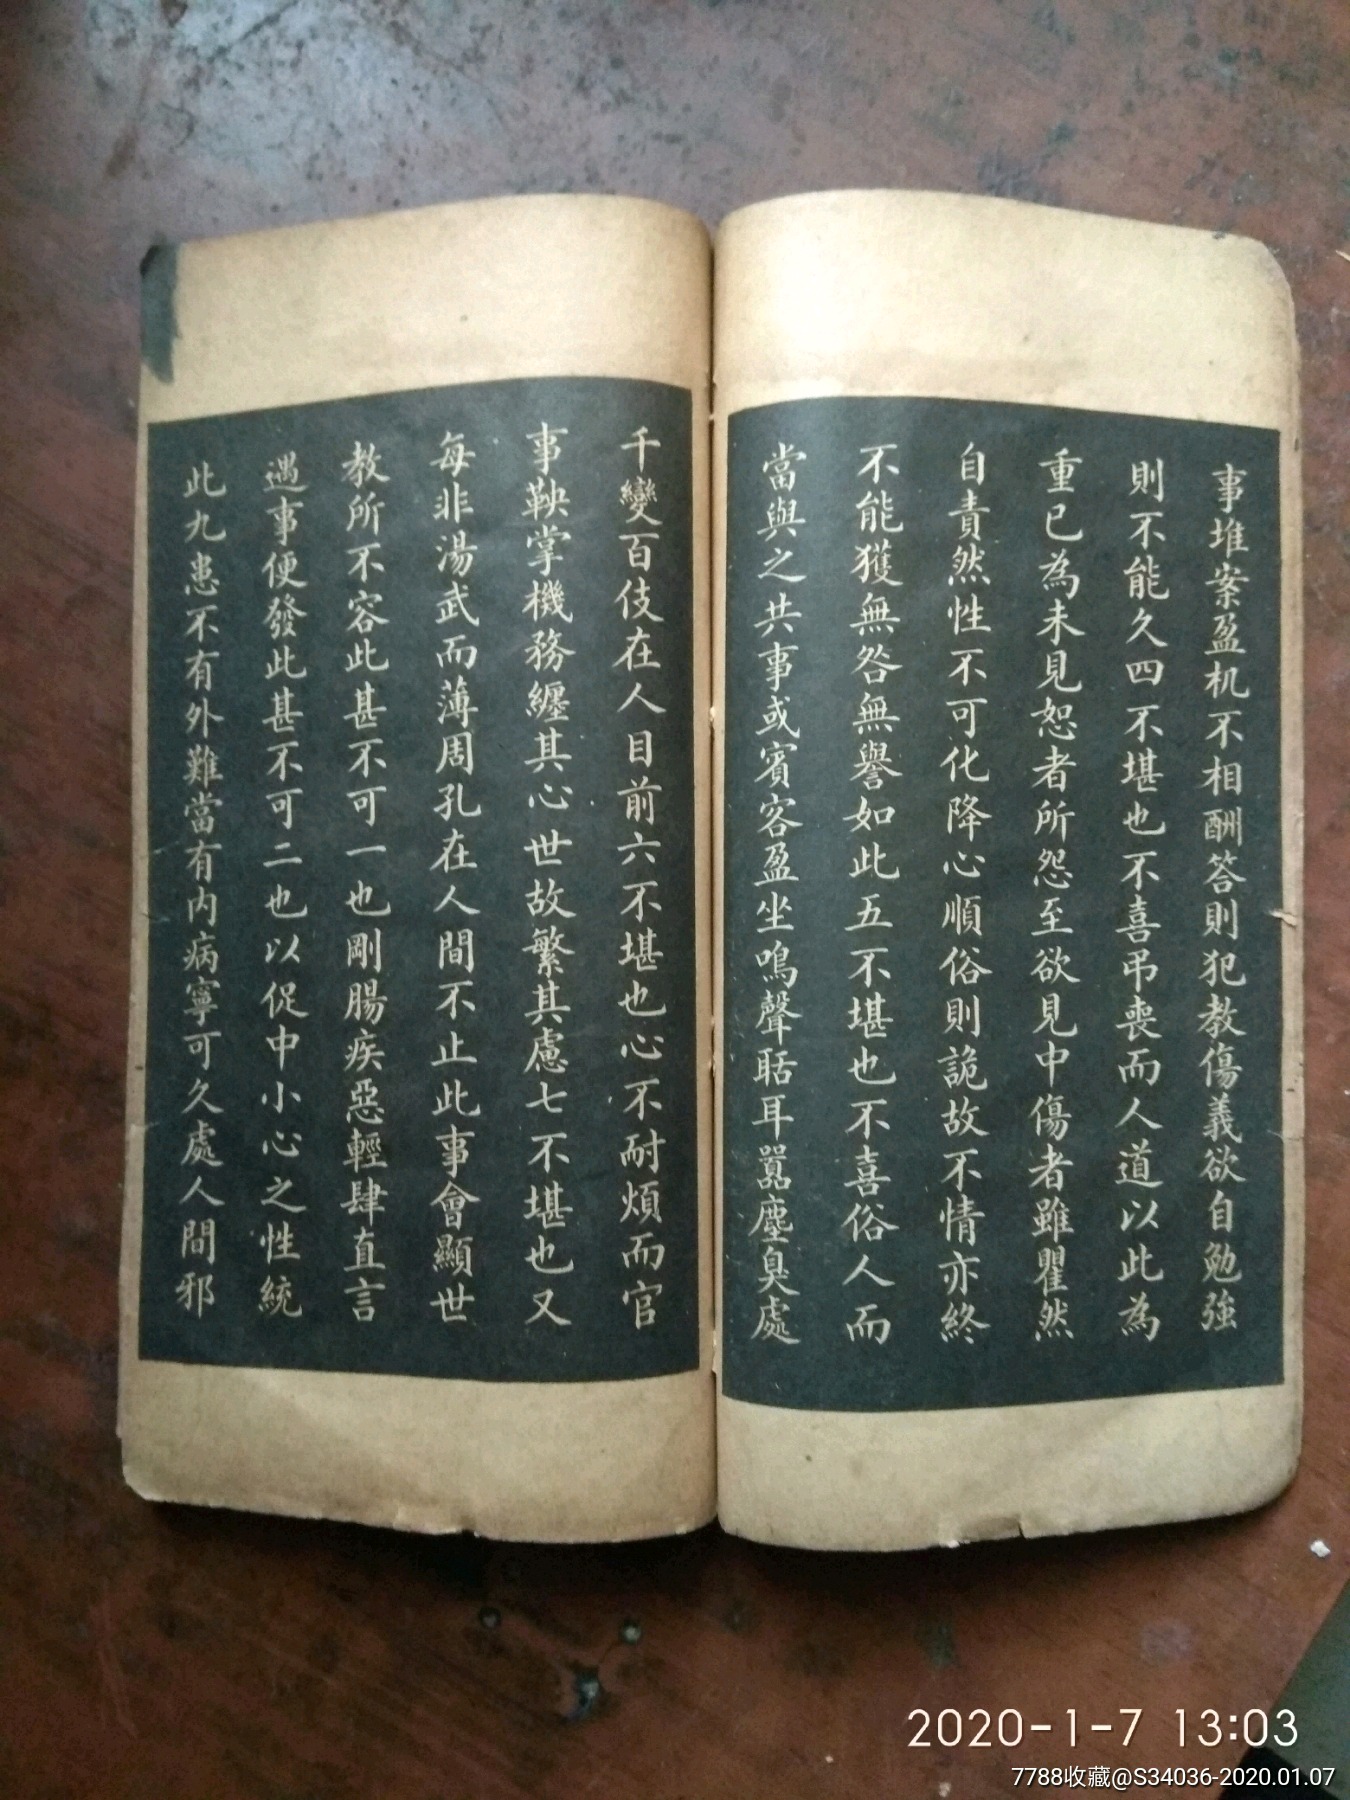 事堆案盈机不相酬答則犯教傷義欲自勉強
則不能久四不堪也不喜弔喪而人道以此為
重已為未見恕者所怨至欲見中傷者雖瞿然
自責然性不可化降心順俗則詭故不情亦終
不能獲無咎無譽如此五不堪也不喜俗人而
當與之共事或賓客盈坐鳴聲聒耳囂塵臭處
千變百伎在人目前六不堪也心不耐煩而官
事鞅掌機務纏其心世故繁其慮七不堪也又
每非湯武而薄周孔在人間不止此事會顯世
教所不容此甚不可一也剛腸疾惡輕肆直言
遇事便發此甚不可二也以促中小心之性統
此九患不有外難當有內病寧可久處人間邪
2020-1-7 13:03
7788收藏@S34036-2020.01.07